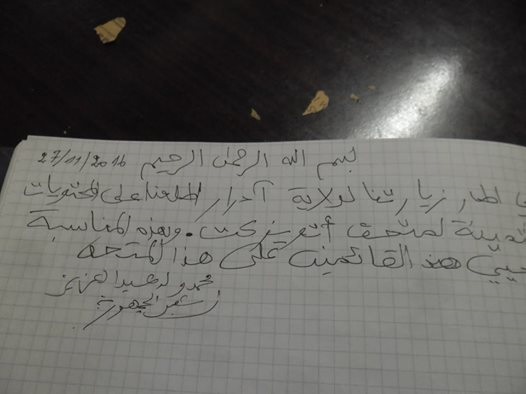 27/11/2016 بسم الله الرحمن الرحيم
في اطار زيارتنا لولاية آدرار اطلعنا على المحتويات
الثمينة لمتحف . وبهذه المناسبة
هذا القائمين على هذا المتحف
محمد ولد عبد العزيز
رئيس الجمهورية